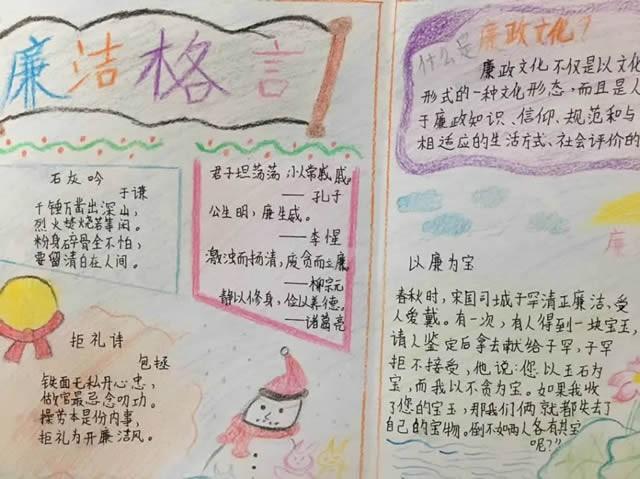 廉洁格言
石灰吟
于谦
千锤万凿出深山,
烈火焚烧若等闲。
粉身碎骨全不怕,
要留清白在人间。
君子坦荡荡,小人常戚戚。
——孔子
公生明,廉生威。
——李惺
激浊而扬清,废贪而立廉。
——柳宗元
静以修身,俭以养德。
——诸葛亮
拒礼诗
包拯
铁面无私丹心忠,
做官最忌念叨功。
操劳本是份内事,
拒礼为开廉洁风。
什么是廉政文化?
廉政文化不仅是以文化
形式的一种文化形态,而且是人
于廉政知识、信仰、规范和与
相适应的生活方式、社会评价的
廉
以廉为宝
春秋时,宋国司城子罕清正廉洁、受
人爱戴。有一次,有人得到一块宝玉,
请人鉴定后拿去献给子罕,子罕
拒不接受,他说:您以玉石为
宝,而我以不贪为宝。如果我收
了您的宝玉,那我们俩就都失去了
自己的宝物。倒不如两人各有其宝
呢?"